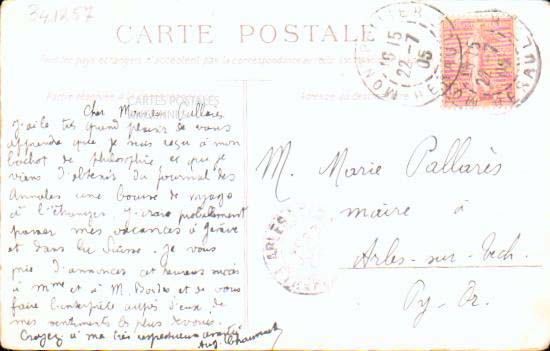 341257
CARTE POSTALE
Tous les pays étrangers n'acceptent pas la correspondance au recto
MONTPELLIER
16 15
22-7
05
HERAULT
CARTES POSTALES
Cher Monsieur Pallarès
J'ai le très grand plaisir de vous
apprendre que je suis reçu à mon
bachot de philosophie et que je
viens d'obtenir du Journal des
Annales une bourse de voyage
à l'étranger. J'irai probablement
passer mes vacances à Genève
et dans la Suisse. Je vous
prie d'annoncer cet heureux succès
à Mme et à M. Bordes et de vous
faire l'interprète auprès d'eux de
mes sentiments les plus dévoués.
Croyez à ma très respectueuse amitié
Aug. Chauvet
M. Marie Pallarès
maire à
Arles-sur-Tech
Py-Or.
ARLES